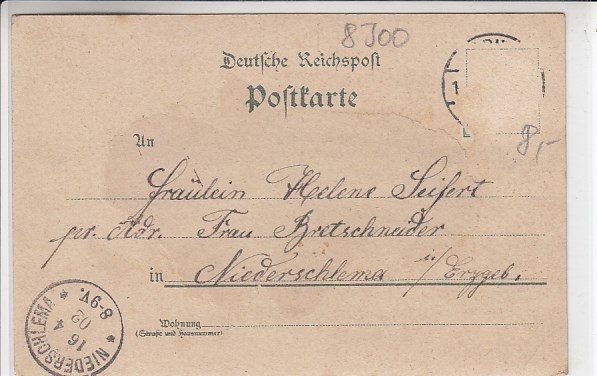 8300
Deutsche Reichspost
Postkarte
8,-
An
Fräulein Helene Seifert
pr. Adr. Frau Bretschneider
in Niederschlema i/Erzgeb.
Wohnung
(Straße und Hausnummer)
NIEDERSCHLEMA
16 4
02
8-9V.